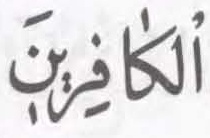 ٱلۡكَٰفِرِينَ